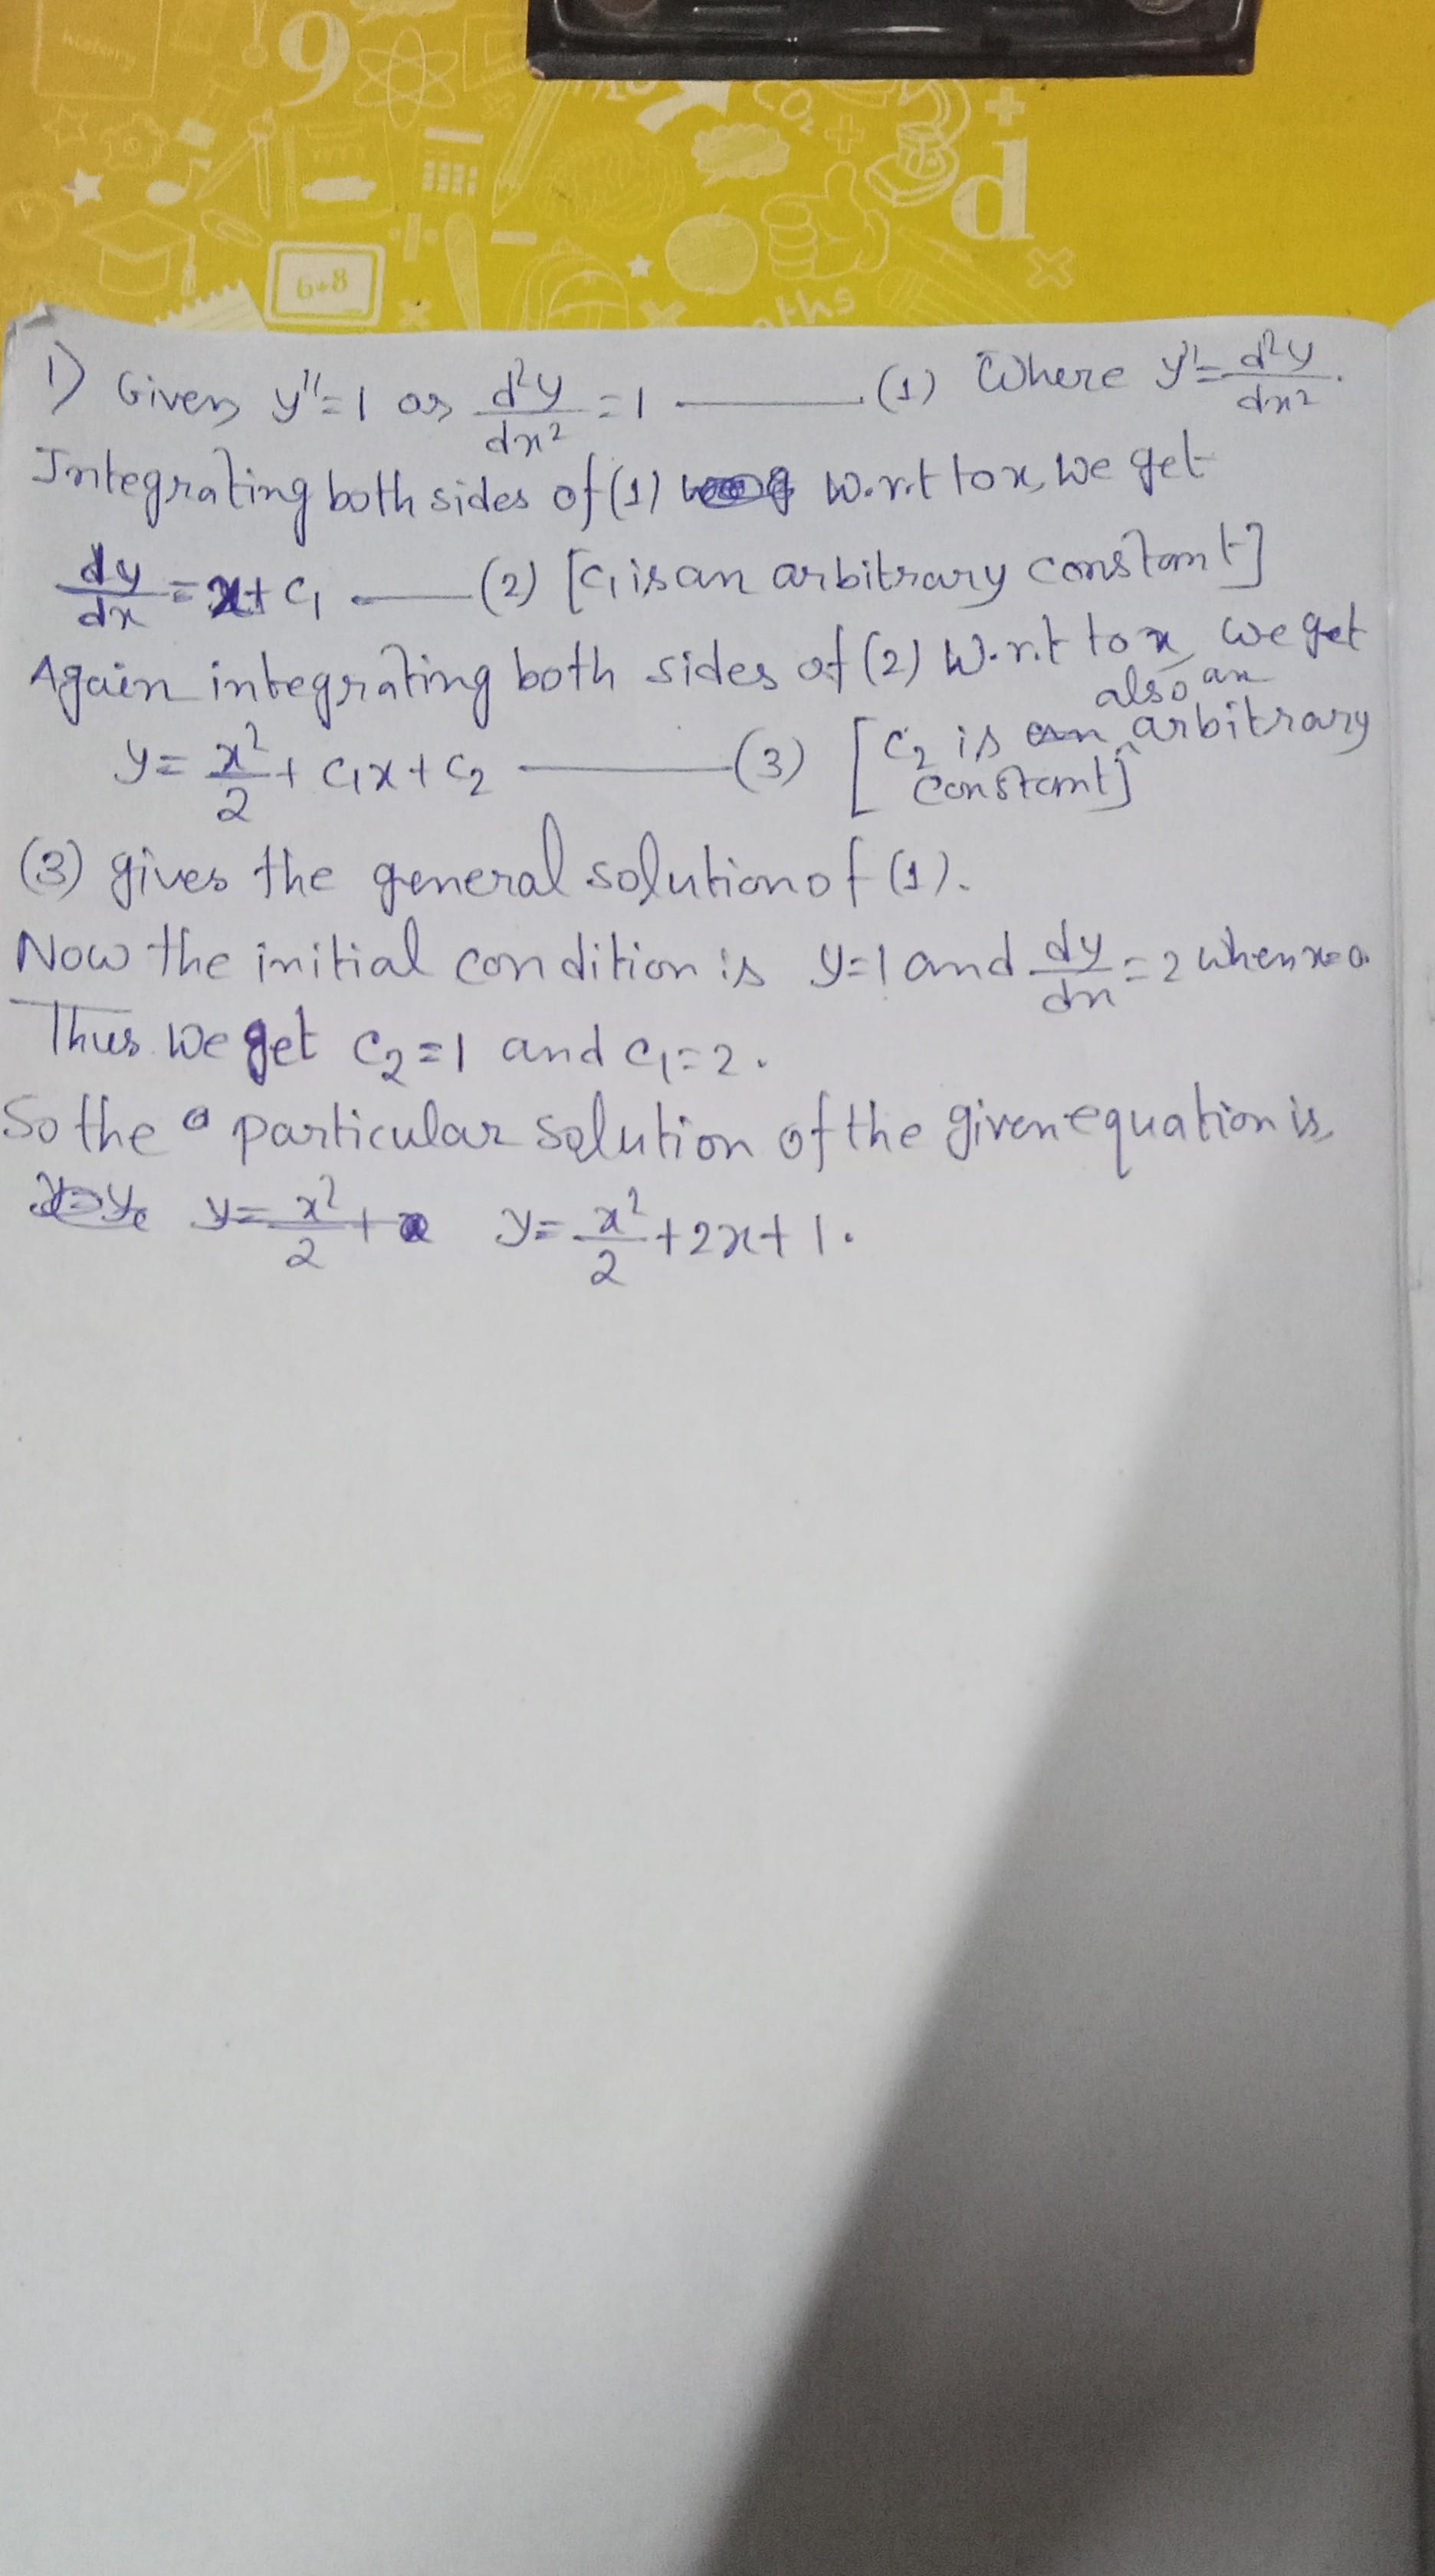 9
CO₂
d
6+8
ths
1) Given y''=1 or d²y/dx² = 1 ——— (1) Where y''=d²y/dx².
Integrating both sides of (1) w.r.t to x, we get
dy/dx = x + c₁ —— (2) [c₁ is an arbitrary constant]
Again integrating both sides of (2) w.r.t to x, we get
y = x²/2 + c₁x + c₂ ——— (3) [c₂ is also an arbitrary
constant]
(3) gives the general solution of (1).
Now the initial condition is y=1 and dy/dx = 2 when x=0.
Thus we get c₂=1 and c₁=2.
So the particular solution of the given equation is,
y = x²/2 + y = x²/2 + 2x + 1.